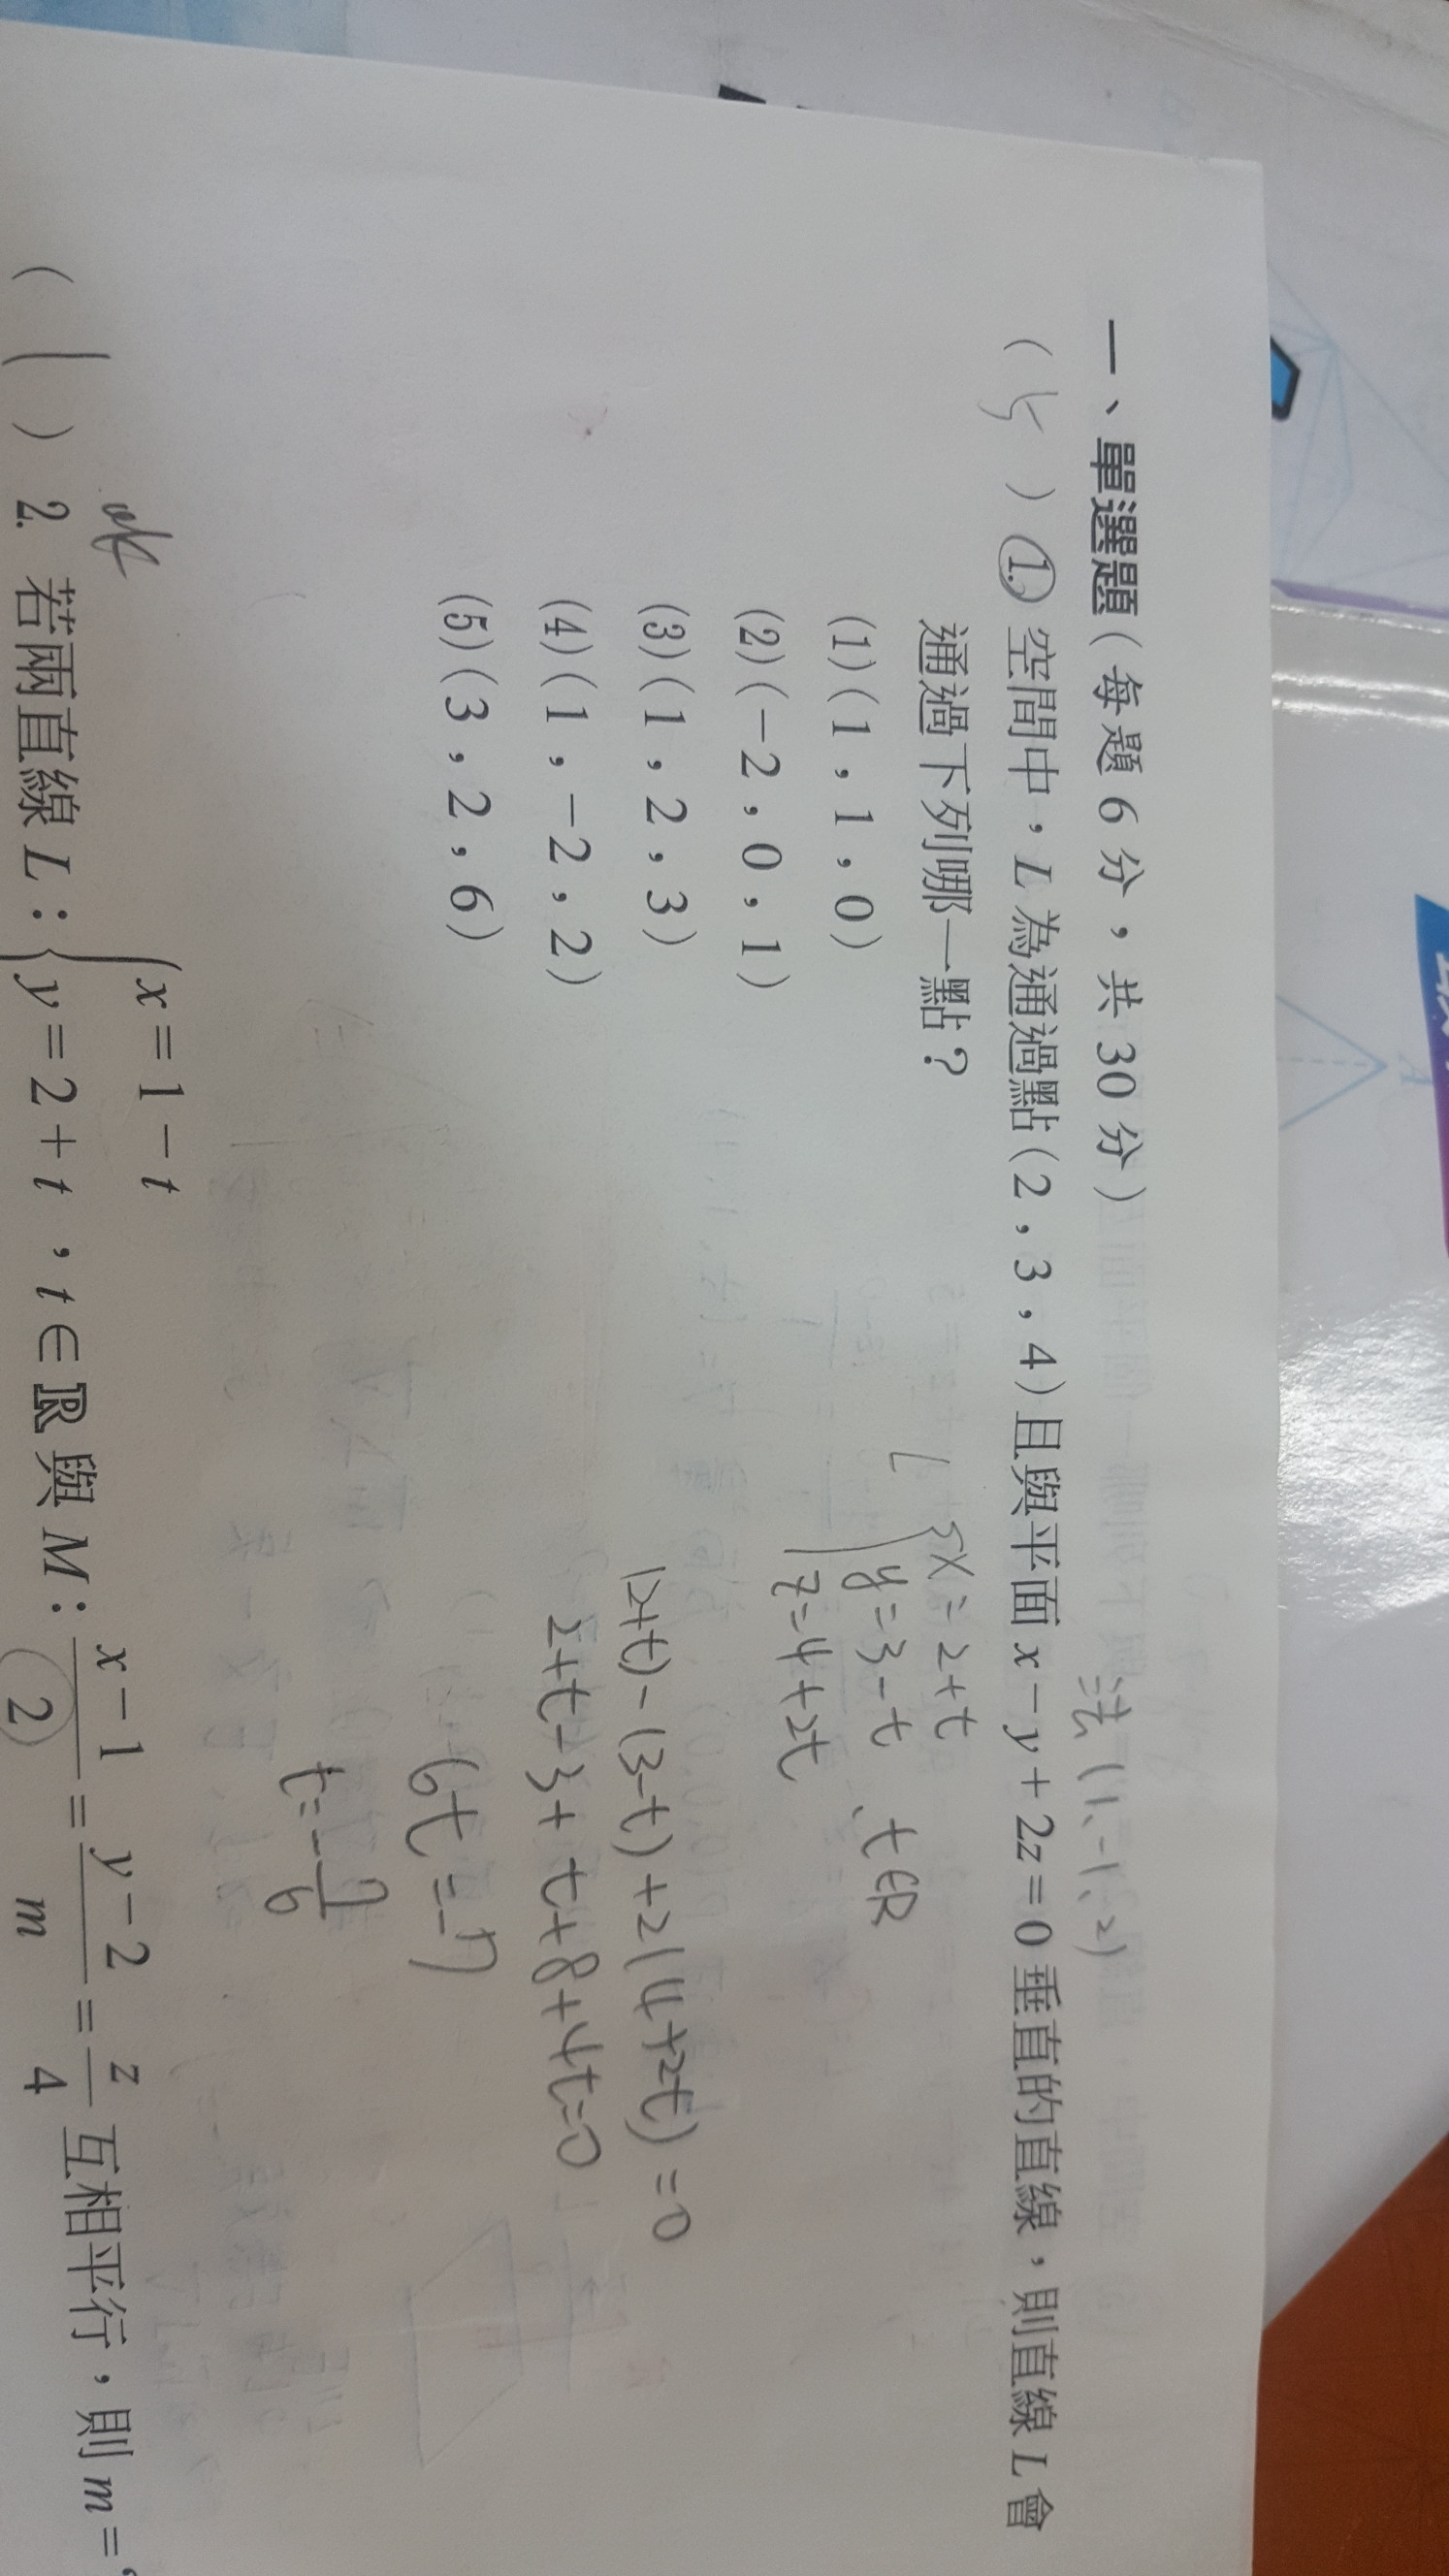 一、單選題(每題 6 分,共 30 分)
法 (1、-1、2)
( 5 ) 1. 空間中,L 為通過點(2,3,4)且與平面 x-y+2z=0 垂直的直線,則直線 L 會
通過下列哪一點?
(1)(1,1,0)
(2)(-2,0,1)
(3)(1,2,3)
(4)(1,-2,2)
(5)(3,2,6)
L { x=2+t
y=3-t 、t∈R
z=4+2t
(2+t)-(3-t)+2(4+2t)=0
2+t-3+t+8+4t=0
6t=-7
t=-7/6
ok
( 1 ) 2. 若兩直線 L:{ x=1-t
y=2+t ,t∈ℝ 與 M:(x-1)/2=(y-2)/m=z/4 互相平行,則 m=